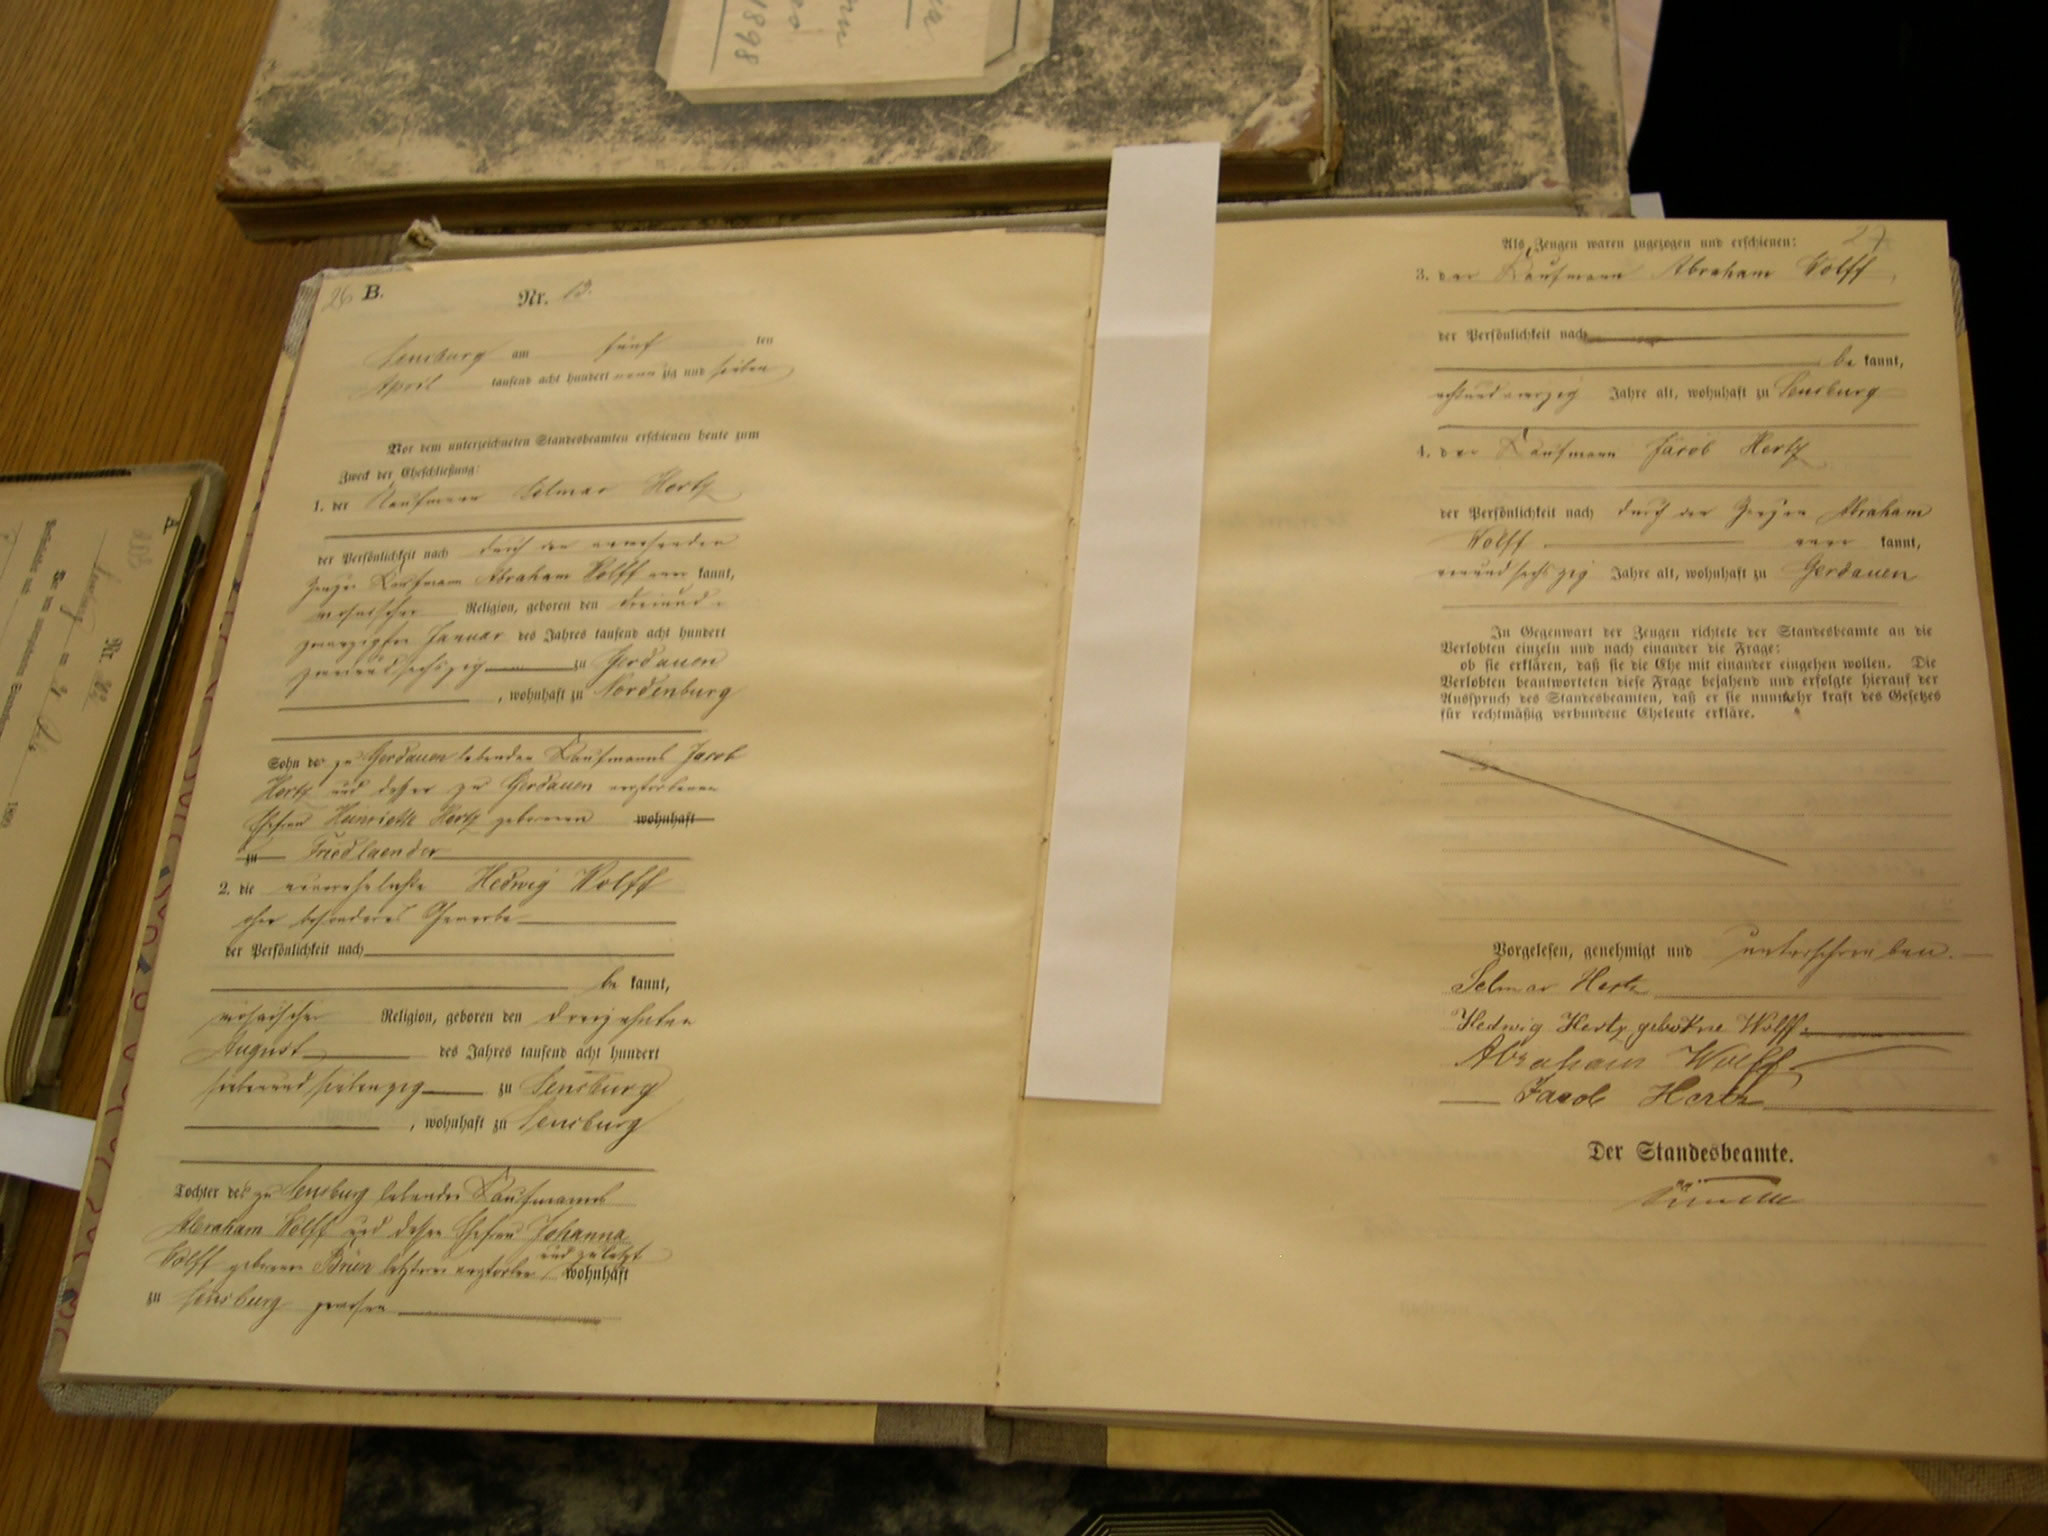 1898
26 B. Nr. 13.
Sensburg am fünf ten
April tausend acht hundert neun zig und sieben
Vor dem unterzeichneten Standesbeamten erschienen heute zum
Zweck der Eheschließung:
1. der Kaufmann Selmar Hertz
der Persönlichkeit nach durch den anwesenden
Zeugen Kaufmann Abraham Wolff aner kannt,
mosaischer Religion, geboren den dreiund-
zwanzigsten Januar des Jahres tausend acht hundert
zweiundsechszig zu Gerdauen
, wohnhaft zu Nordenburg
Sohn des zu Gerdauen lebenden Kaufmanns Jacob
Hertz und dessen zu Gerdauen verstorbenen
Ehefrau Heinriette Hertz geborenen wohnhaft
zu Friedlaender
2. die unverehelichte Hedwig Wolff
ohne besonderes Gewerbe
der Persönlichkeit nach
be kannt,
mosaischer Religion, geboren den dreizehnten
August des Jahres tausend acht hundert
siebenundsiebenzig zu Sensburg
, wohnhaft zu Sensburg
Tochter des zu Sensburg lebenden Kaufmanns
Abraham Wolff und dessen Ehefrau Johanna
und zuletzt
Wolff geborenen Brün letztere verstorben wohnhaft
zu Sensburg gewesen
27
Als Zeugen waren zugezogen und erschienen:
3. der Kaufmann Abraham Wolff
der Persönlichkeit nach
be kannt,
achtundvierzig Jahre alt, wohnhaft zu Sensburg
4. der Kaufmann Jacob Hertz
der Persönlichkeit nach durch den Zeugen Abraham
Wolff aner kannt,
Jahre alt, wohnhaft zu Gerdauen
In Gegenwart der Zeugen richtete der Standesbeamte an die
Verlobten einzeln und nach einander die Frage:
ob sie erklären, daß sie die Ehe mit einander eingehen wollen. Die
Verlobten beantworteten diese Frage bejahend und erfolgte hierauf der
Ausspruch des Standesbeamten, daß er sie nunmehr kraft des Gesetzes
für rechtmäßig verbundene Eheleute erkläre.
Vorgelesen, genehmigt und unterschrieben.
Selmar Hertz
Hedwig Hertz geborne Wolff.
Abraham Wolff
Jacob Hertz
Der Standesbeamte.
A
Nr.